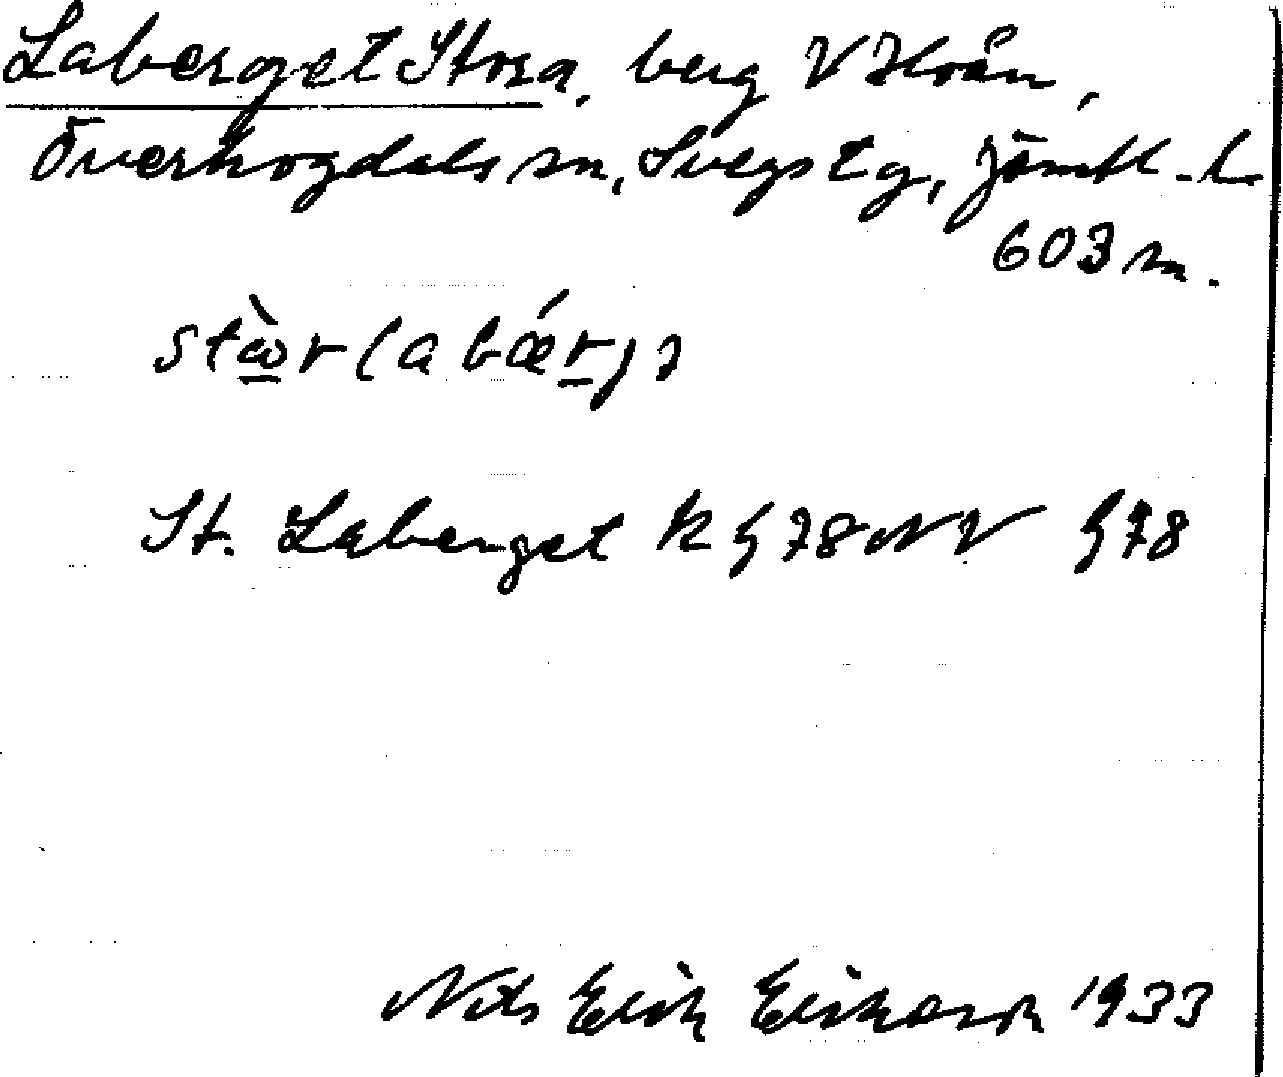 Laberget Stora, berg V Hoån,
Överhogdals sn, Svegs tg, Jämtl. l.
603 m.
stæ̀r(abǽr)ɔ
St. Laberget k § 78 NV § 78
Nils Erik Eriksson 1933